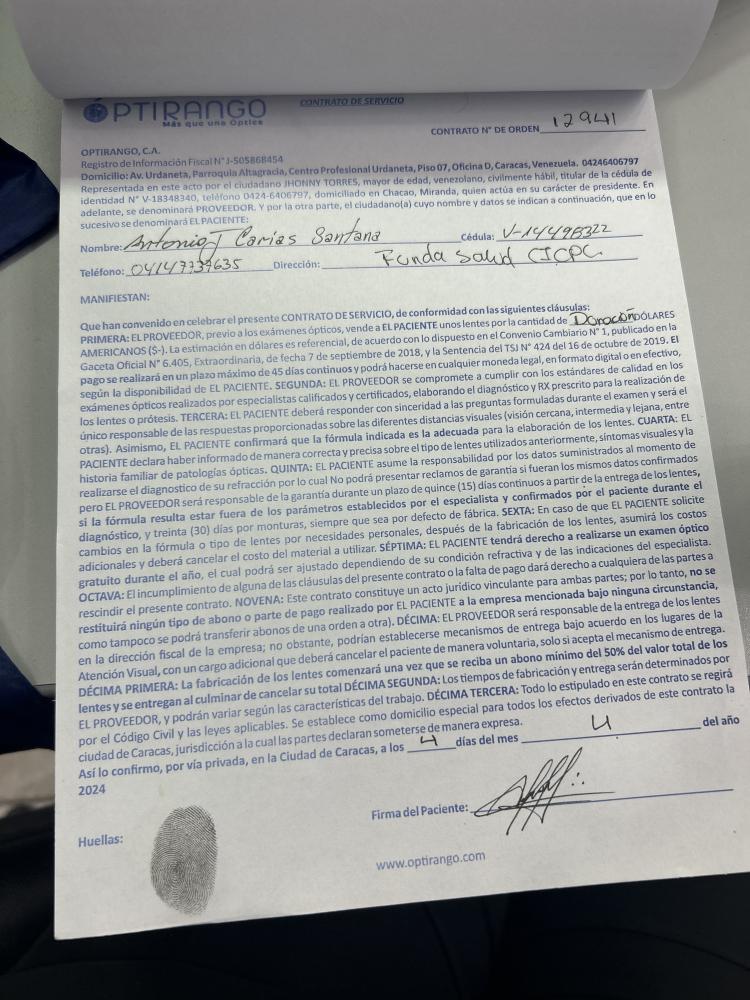 OPTIRANGO
Más que una Óptica
CONTRATO DE SERVICIO
CONTRATO N° DE ORDEN 12941
OPTIRANGO, C.A.
Registro de Información Fiscal N° J-505868454
Domicilio: Av. Urdaneta, Parroquia Altagracia, Centro Profesional Urdaneta, Piso 07, Oficina D, Caracas, Venezuela. 04246406797
Representada en este acto por el ciudadano JHONNY TORRES, mayor de edad, venezolano, civilmente hábil, titular de la cédula de
identidad N° V-18348340, teléfono 0424-6406797, domiciliado en Chacao, Miranda, quien actúa en su carácter de presidente. En
adelante, se denominará PROVEEDOR. Y por la otra parte, el ciudadano(a) cuyo nombre y datos se indican a continuación, que en lo
sucesivo se denominará EL PACIENTE:
Nombre: Antonio J Carias Santana Cédula: V-14498322
Teléfono: 04147739635 Dirección: Funda Salud CICPC
MANIFIESTAN:
Que han convenido en celebrar el presente CONTRATO DE SERVICIO, de conformidad con las siguientes cláusulas:
PRIMERA: EL PROVEEDOR, previo a los exámenes ópticos, vende a EL PACIENTE unos lentes por la cantidad de Donación DÓLARES
AMERICANOS ($-). La estimación en dólares es referencial, de acuerdo con lo dispuesto en el Convenio Cambiario N° 1, publicado en la
Gaceta Oficial N° 6.405, Extraordinaria, de fecha 7 de septiembre de 2018, y la Sentencia del TSJ N° 424 del 16 de octubre de 2019. El
pago se realizará en un plazo máximo de 45 días continuos y podrá hacerse en cualquier moneda legal, en formato digital o en efectivo,
según la disponibilidad de EL PACIENTE. SEGUNDA: EL PROVEEDOR se compromete a cumplir con los estándares de calidad en los
exámenes ópticos realizados por especialistas calificados y certificados, elaborando el diagnóstico y RX prescrito para la realización de
los lentes o prótesis. TERCERA: EL PACIENTE deberá responder con sinceridad a las preguntas formuladas durante el examen y será el
único responsable de las respuestas proporcionadas sobre las diferentes distancias visuales (visión cercana, intermedia y lejana, entre
otras). Asimismo, EL PACIENTE confirmará que la fórmula indicada es la adecuada para la elaboración de los lentes. CUARTA: EL
PACIENTE declara haber informado de manera correcta y precisa sobre el tipo de lentes utilizados anteriormente, síntomas visuales y la
historia familiar de patologías ópticas. QUINTA: EL PACIENTE asume la responsabilidad por los datos suministrados al momento de
realizarse el diagnostico de su refracción por lo cual No podrá presentar reclamos de garantia si fueran los mismos datos confirmados
pero EL PROVEEDOR será responsable de la garantía durante un plazo de quince (15) días continuos a partir de la entrega de los lentes,
si la fórmula resulta estar fuera de los parámetros establecidos por el especialista y confirmados por el paciente durante el
diagnóstico, y treinta (30) días por monturas, siempre que sea por defecto de fábrica. SEXTA: En caso de que EL PACIENTE solicite
cambios en la fórmula o tipo de lentes por necesidades personales, después de la fabricación de los lentes, asumirá los costos
adicionales y deberá cancelar el costo del material a utilizar. SÉPTIMA: EL PACIENTE tendrá derecho a realizarse un examen óptico
gratuito durante el año, el cual podrá ser ajustado dependiendo de su condición refractiva y de las indicaciones del especialista.
OCTAVA: El incumplimiento de alguna de las cláusulas del presente contrato o la falta de pago dará derecho a cualquiera de las partes a
rescindir el presente contrato. NOVENA: Este contrato constituye un acto jurídico vinculante para ambas partes; por lo tanto, no se
restituirá ningún tipo de abono o parte de pago realizado por EL PACIENTE a la empresa mencionada bajo ninguna circunstancia,
como tampoco se podrá transferir abonos de una orden a otra). DÉCIMA: EL PROVEEDOR será responsable de la entrega de los lentes
en la dirección fiscal de la empresa; no obstante, podrían establecerse mecanismos de entrega bajo acuerdo en los lugares de la
Atención Visual, con un cargo adicional que deberá cancelar el paciente de manera voluntaria, solo si acepta el mecanismo de entrega.
DÉCIMA PRIMERA: La fabricación de los lentes comenzará una vez que se reciba un abono mínimo del 50% del valor total de los
lentes y se entregan al culminar de cancelar su total DÉCIMA SEGUNDA: Los tiempos de fabricación y entrega serán determinados por
EL PROVEEDOR, y podrán variar según las características del trabajo. DÉCIMA TERCERA: Todo lo estipulado en este contrato se regirá
por el Código Civil y las leyes aplicables. Se establece como domicilio especial para todos los efectos derivados de este contrato la
ciudad de Caracas, jurisdicción a la cual las partes declaran someterse de manera expresa.
Así lo confirmo, por vía privada, en la Ciudad de Caracas, a los 4 días del mes 4 del año
2024
Firma del Paciente:
Huellas:
www.optirango.com